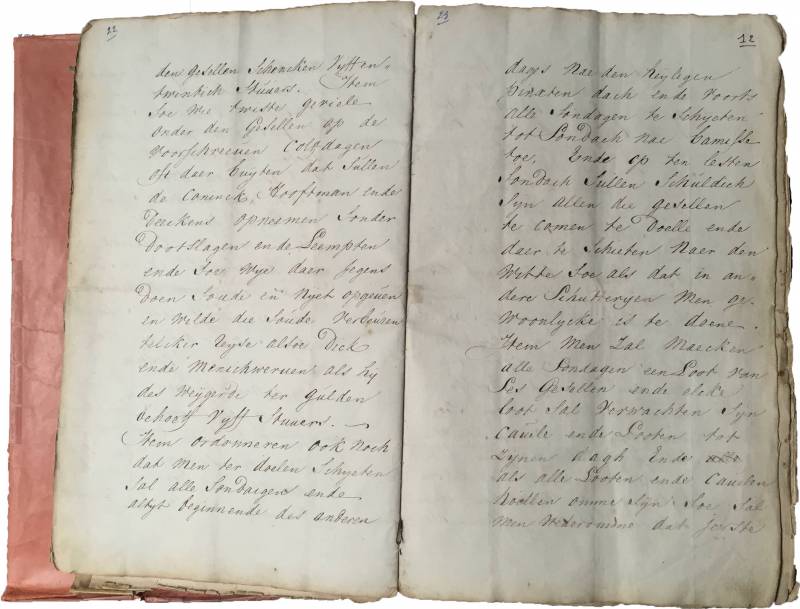 22
den Gesellen Schencken Vyff en-
twintich Stuvers. Item
Soe wie twiste geviele
onder den Gesellen op de
voorschreven Colfdagen
oft daer buyten dat Sullen
de Coninck, Hooftman ende
Deeckens opnemen Sonder
Dootslagen ende Leempten
ende Soe wye daer jegens
doen Soude en nyet opgeven
en wilde die Soude verbeuren
telcker Reyse alsoe Dick
ende menichwerven als hy
des weygerde ter gulden
behoeff Vyff Stuvers.
Item ordonneren ook noch
dat men ter doelen Schyeten
Sal alle Sondaegen ende
altyt beginnende des anderen
23
12
daegs nae den heylegen
Pinxten dach ende voorts
alle Sondagen te Schyeten
tot Sondach nae Bamesse
toe, Ende op ten lesten
Sondach Sullen Schuldich
Syn allen die gesellen
te comen te Doelle ende
daer te Schieten Naer den
Witte Soe als dat in an-
dere Schutteryen Men ge-
woonlycke is te doene.
Item Men Zal Maecken
alle Sondagen een Loot van
Ses Gesellen ende elcke
loot Sal verwachten Syn
Cavele ende Looten tot
Zynen dagh Ende
als alle Looten ende Cavelen
omme Syn Soe Sal
men wederomme dat jerste